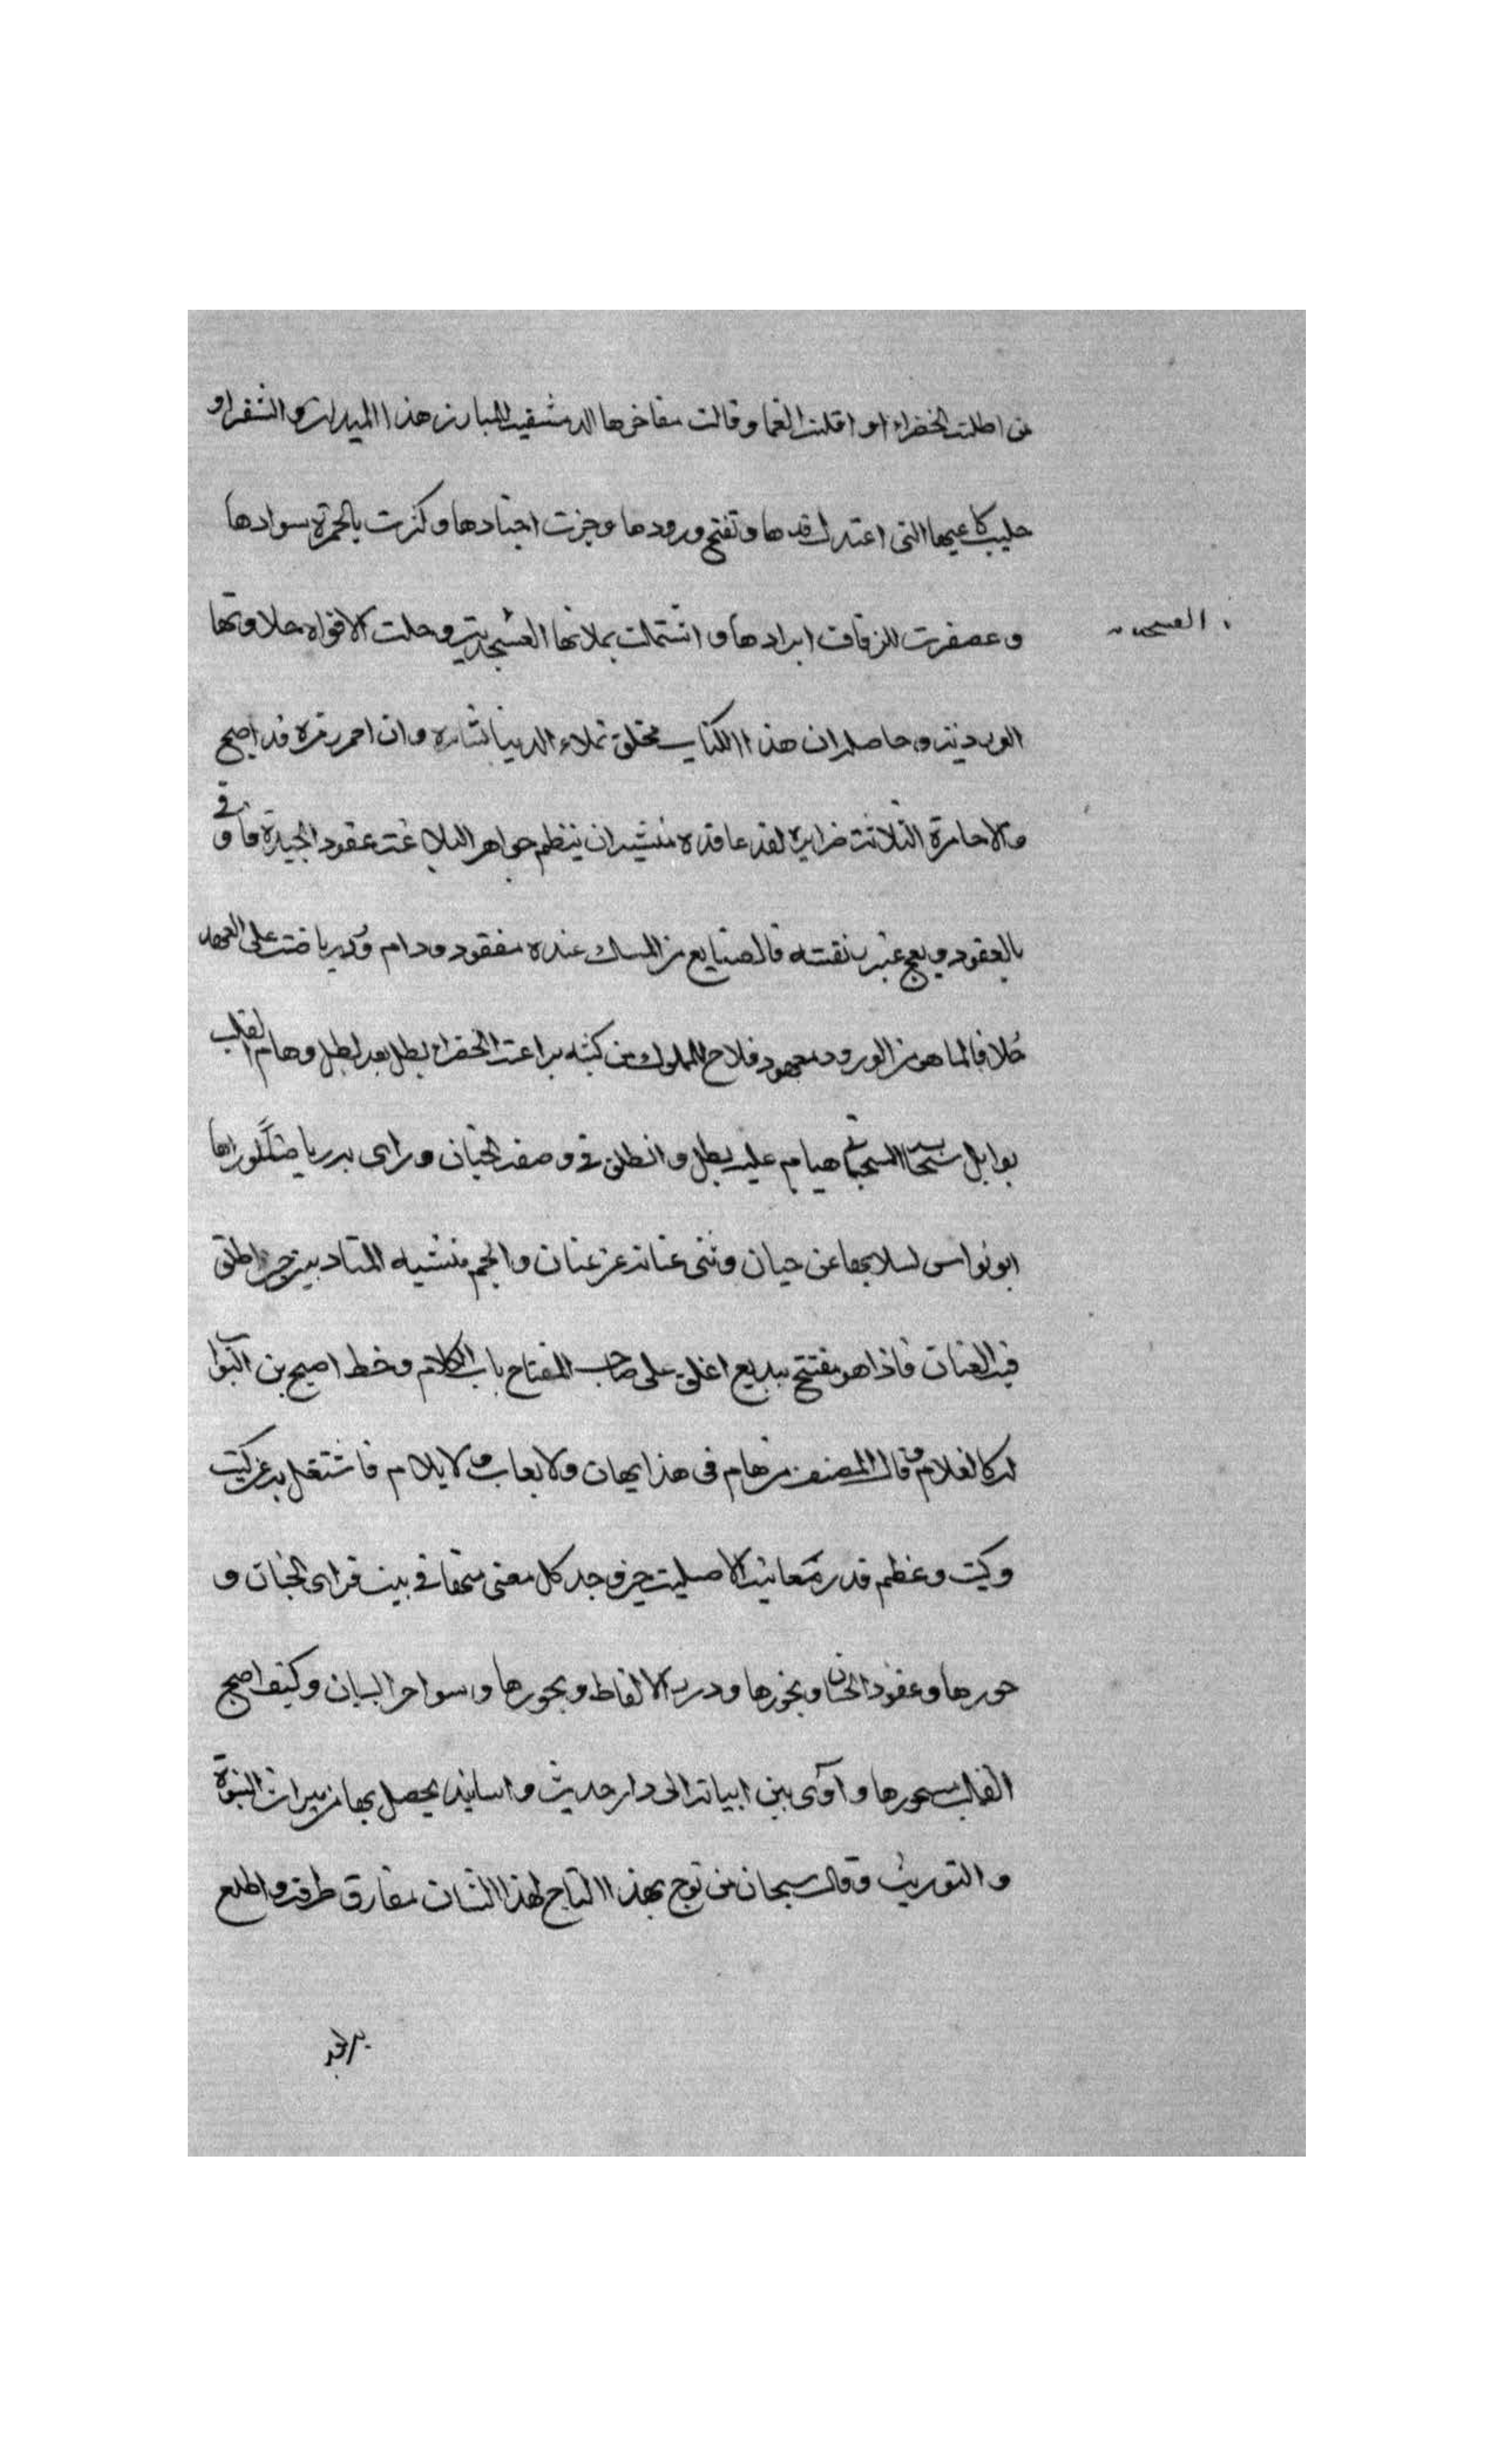 من اظلت الخضراء او اقلت الغما وقالت مفاخرها الدمشقيه للمبارز هذا الميدان والشقرا و
حليب كاعيها التي اعتدل قدها وتفتح ورودها وجزت اجتادها وكزت بالحمرة سوادها
وعصفرت للزفاف ابرادها واشتملت بملاتها العسجديته وحلت الافواه حلاوتها
العسجديه
الورديته وحاصله ان هذا الكتاب مخلق تملاء الدنيا بشايره وان احمر زهره قد اصبح
والاحامرة الثلاثة ضرايره لقد عاقده منشيه ان ينظم جواهر البلاغة عقود الجيدة فا وفى
بالعقود ويعج عنبر نقسه فالضايع من المسك عنده مفقود ودام ورد رياضته على العهد
خلافا لما هو من الورود معهود فلاح للملوك من كتبه براعة الخضراء بطل بعد بطل وهام القلب
بوابل سحابها السحباني هيام عليه يطل وانطلق في وصف الجنان وراى به رياضا لو راها
ابو نواس لسلا بها عن جنان وثنى عنانه عن عنان والجم منشيه المتادبين حين اطلق
فيه العنان فاذا هو مفتتح ببديع اغلق على صاحب المفتاح باب الكلام وخط اصبح بن البواب
له كالغلام وقال المصنف من هام في هذا يهان ولا يعاب ولا يلام فاشتغل به عن كيت
وكيت وعظم قدر معانيه الاصليته حين وجد كل معنى منها في بيت فراى الجنان و
حورها وعقود الحسان ونحورها ودرر الالفاظ وبحورها وسواحر البيان وكيف اصبح
القلب مسحورها وآوى بين ابياته الى دار حديث واسانيد يحصل بها من ميراث النبوة
والتوريث وقال سبحان من توج بهذا التاج لهذا الشان مفارق طرقه واطلع